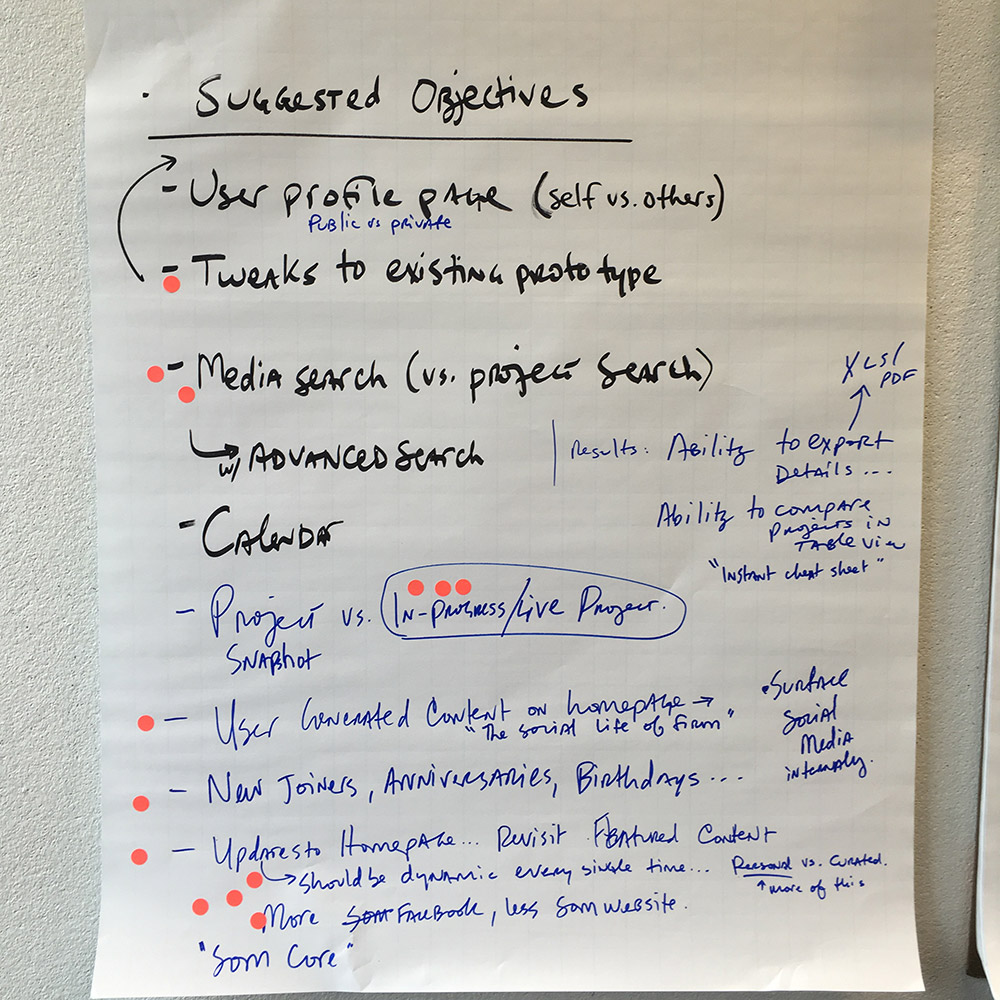 · Suggested Objectives
- User profile page (self vs. others)
Public vs private
- Tweaks to existing prototype
- Media search (vs. project search)
XLS/
PDF
w/ Advanced Search
Results: Ability to export
Details...
- Calendar
Ability to compare
projects in
table view
"Instant cheat sheet"
- Project vs. In-progress/Live Project.
Snapshot
- User Generated Content on homepage →
"The social life of firm"
• Surface
Social
Media
internally.
- New Joiners, Anniversaries, Birthdays...
- Updates to Homepage... Revisit Featured Content
→ should be dynamic every single time... Personal vs. curated.
↑ more of this
More SOM Facebook, less som website.
"Som Core"